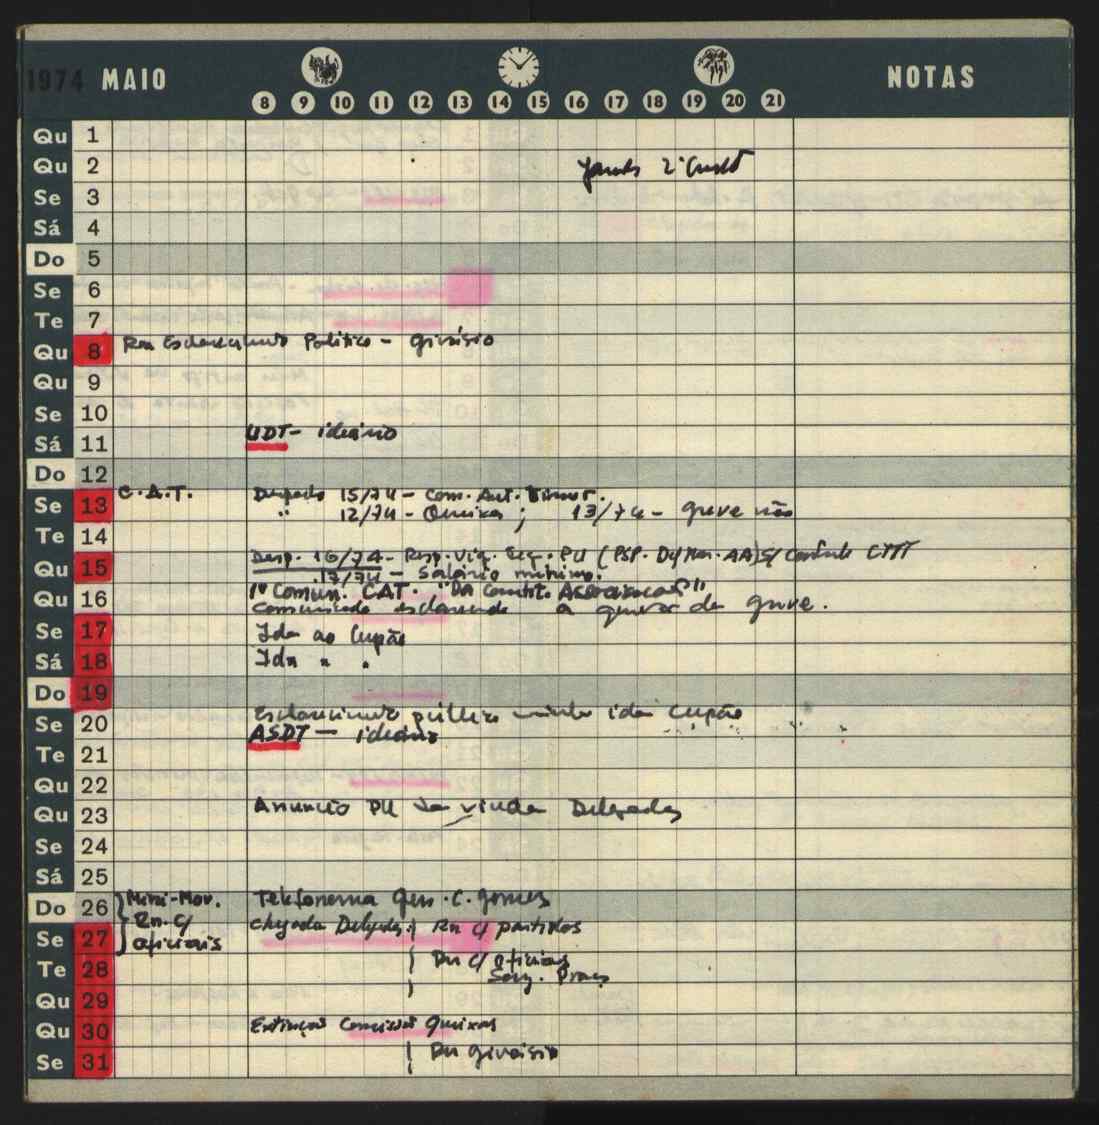 1974 MAIO NOTAS
8 9 10 11 12 13 14 15 16 17 18 19 20 21
Qu 1
Qu 2
Se 3
Sá 4
Do 5
Se 6
Te 7
Qu 8 Rn Esclarecimento Politico - ginásio
Qu 9
Se 10
Sá 11 UDT - ideário
Do 12
Se 13 C.A.T. Despacho 15/74 - Com. Aut. Timor.
" 12/74 - Queixas ; 13/74 - greve não
Te 14
Qu 15 Desp. 16/74 - Resp. Vig. Seg. PU (PSP.
17/74 - Salário mínimo.
Qu 16 1º Comun. CAT. "Da Constit. Associações"
Comunicado esclarecendo a greve.
Se 17 Ida ao Cupão
Sá 18 Ida " "
Do 19
Se 20 Esclarecimento público minha ida Cupão
ASDT - ideário
Te 21
Qu 22
Qu 23 Anuncio PU da vinda Delgados
Se 24
Sá 25
Do 26 Mini-Mov. Telefonema Gen. C. Gomes
Rn. c/
Se 27 oficiais Chegada Delgados. Rn c/ partidos
Te 28 Rn c/ oficiais
Sarg. Praças
Qu 29
Qu 30 Extinção Comissão Queixas
Se 31 Rn ginásio